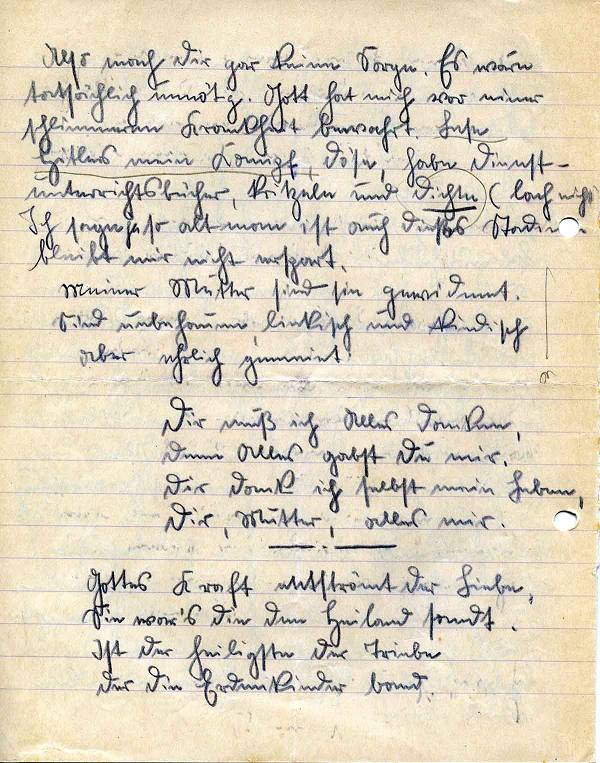 Also mach Dir gar keine Sorgen. Es wären
tatsächlich unnötg. Gott hat mich vor einer
schlimmeren Krankheit bewahrt. Lese
Hitlers mein Kampf, döse, habe Dienst-
unterrichtsbücher, kritzeln und dichte (lach nicht
Ich sagn ja so alt man ist auch dieses Stadium
bleibt mir nicht erspart.
Meiner Mutter sind sie gewidmet.
Sind unbehauen, linkisch und kindisch
aber ehrlich gemeint!
Dir muß ich Alles danken,
denn Alles gabst Du mir.
Dir dank ich selbst mein Leben,
Dir, Mutter, alles mir.
Gottes Kraft entströmt der Liebe,
Sie war's die den Heiland sandt.
Ist der heiligste der Triebe
der die Erdenkinder band.